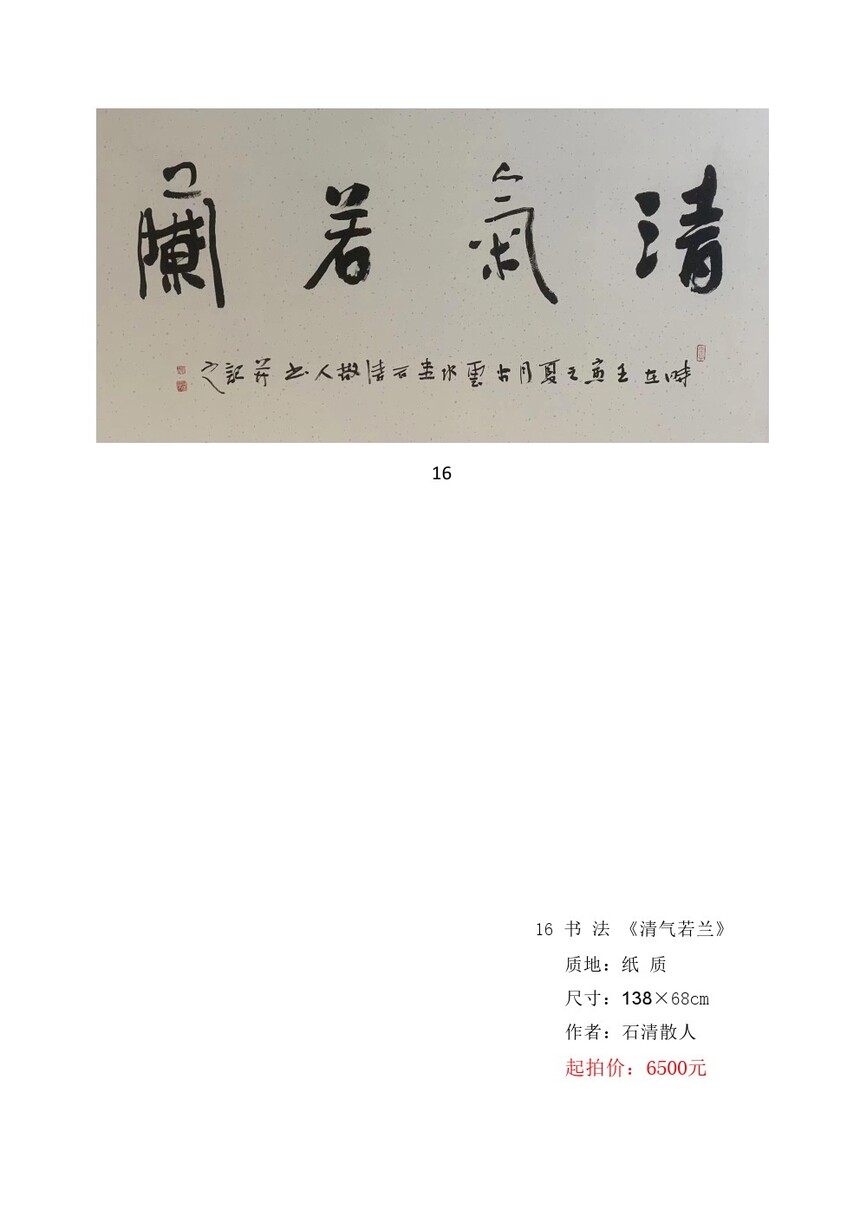 清氣若蘭
時在壬寅之夏月雲水石清散人书并記之
16
16 书 法 《清气若兰》
质地：纸 质
尺寸：138×68cm
作者：石清散人
起拍价：6500元